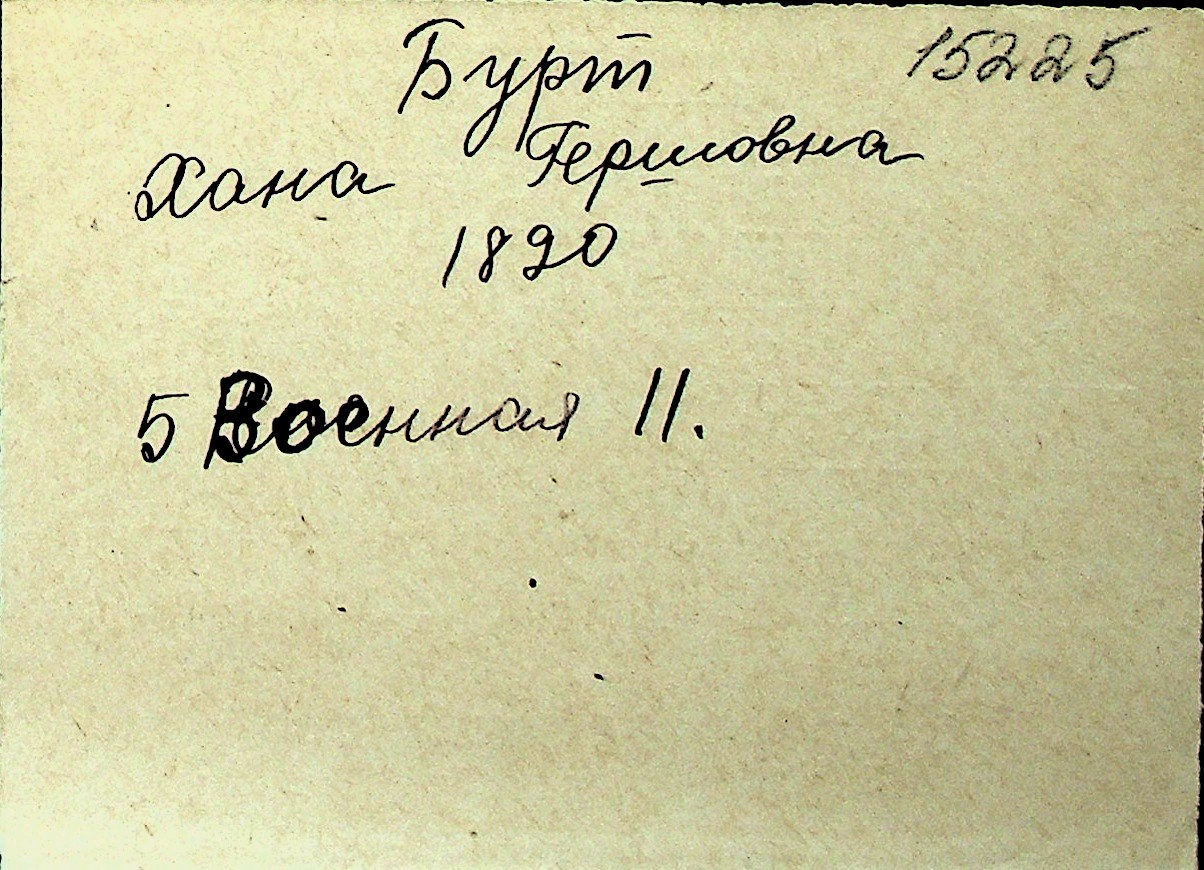 Бурт 15225
Хана Гершовна
1890
5 Военная 11.